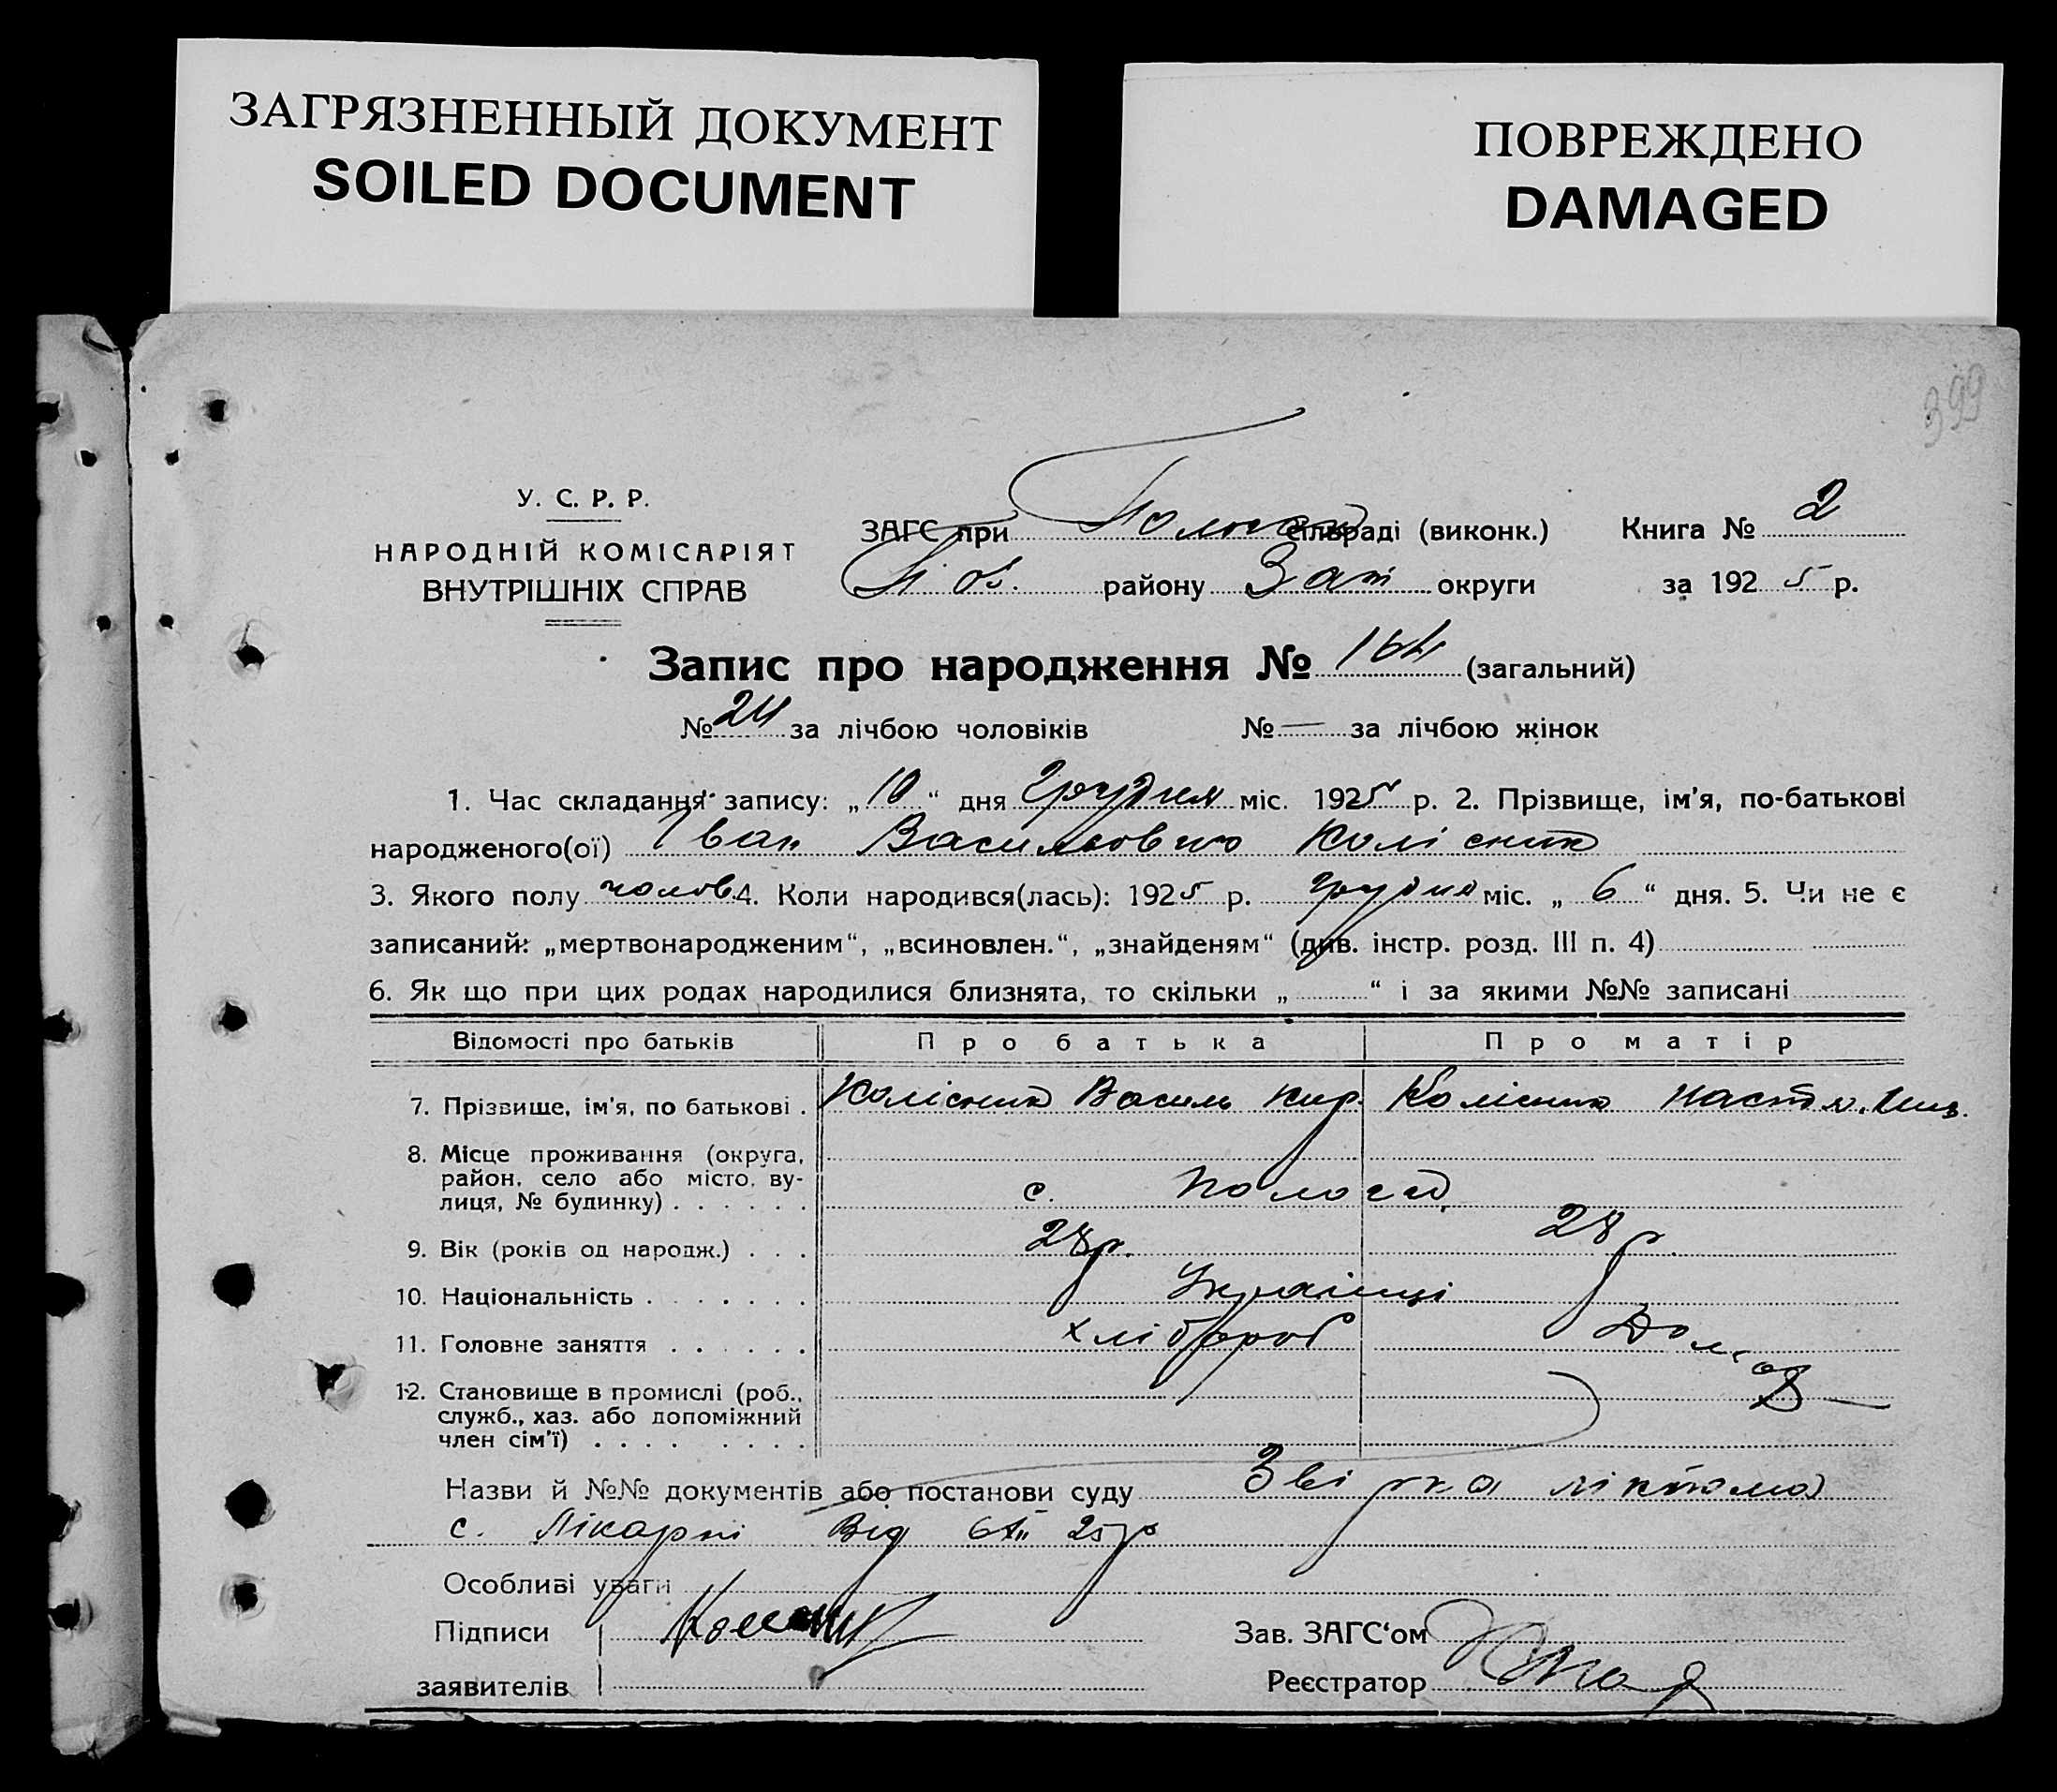 ЗАГРЯЗНЕННЫЙ ДОКУМЕНТ
SOILED DOCUMENT
ПОВРЕЖДЕНО
DAMAGED
399
У. С. Р. Р.
НАРОДНІЙ КОМІСАРІЯТ
ВНУТРІШНІХ СПРАВ
ЗАГС при сільраді (виконк.) Книга № 2
району Зап округи за 1925 р.
Запис про народження № 164 (загальний)
№ 24 за лічбою чоловіків № — за лічбою жінок
1. Час складання запису: „10“ дня Грудня міс. 1925 р. 2. Прізвище, ім'я, по-батькові
народженого(ої) Іван Васильович Колісник
3. Якого полу чолов. 4. Коли народився(лась): 1925 р. Грудня міс. „6“ дня. 5. Чи не є
записаний: „мертвонародженим“, „всиновлен.“, „знайденям“ (див. інстр. розд. III п. 4)
6. Як що при цих родах народилися близнята, то скільки „ “ і за якими №№ записані
Відомості про батьків Про батька Про матір
7. Прізвище, ім'я, по батькові . Колісник Василь Кир. Колісник Настя
8. Місце проживання (округа,
район, село або місто, ву-
лиця, № будинку) . . . . . . с. Пологи
9. Вік (років од народж.) . . . 28 р. 28 р.
10. Національність . . . . . . . Українці
11. Головне заняття . . . . . . хлібороб
12. Становище в промислі (роб.,
служб., хаз. або допоміжний
член сім'ї) . . . . . . . . .
Назви й №№ документів або постанови суду
с. Лікарні Від 6 XII 25 р
Особливі уваги
Підписи
заявителів
Зав. ЗАГС'ом
Реєстратор